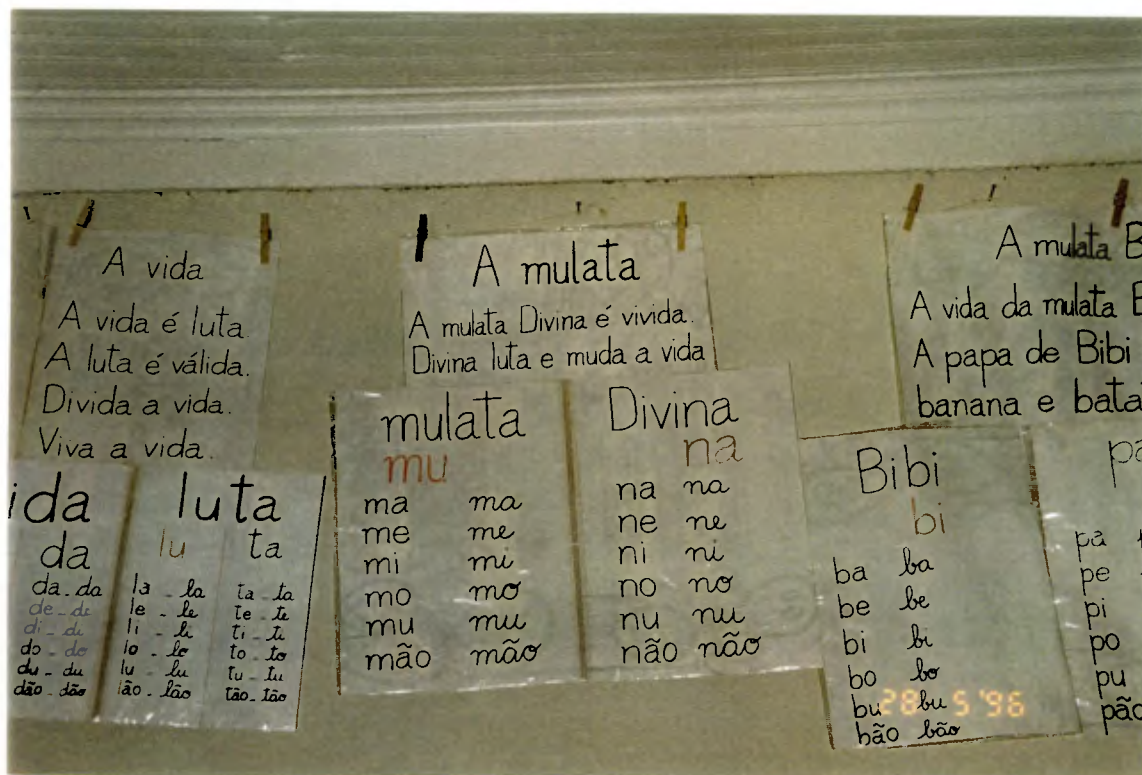 A vida
A vida é luta.
A luta é válida.
Divida a vida.
Viva a vida.
ida
da
da - da
de - de
di - di
do - do
du - du
dão - dão
luta
lu ta
la - la ta - ta
le - le te - te
li - li ti - ti
lo - lo to - to
lu - lu tu - tu
lão - lão tão - tão
A mulata
A mulata Divina é vivida.
Divina luta e muda a vida
mulata
mu
ma ma
me me
mi mi
mo mo
mu mu
mão mão
Divina
na
na na
ne ne
ni ni
no no
nu nu
não não
A mulata B
A vida da mulata B
A papa de Bibi
banana e bata
Bibi
bi
ba ba
be be
bi bi
bo bo
bu bu
bão bão
pa
pa
pe
pi
po
pu
pão
28 5 '96